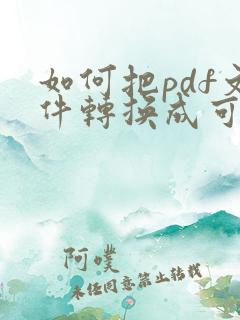 如何把pdf文
件轉換成可
阿噗
未经同意禁止转载